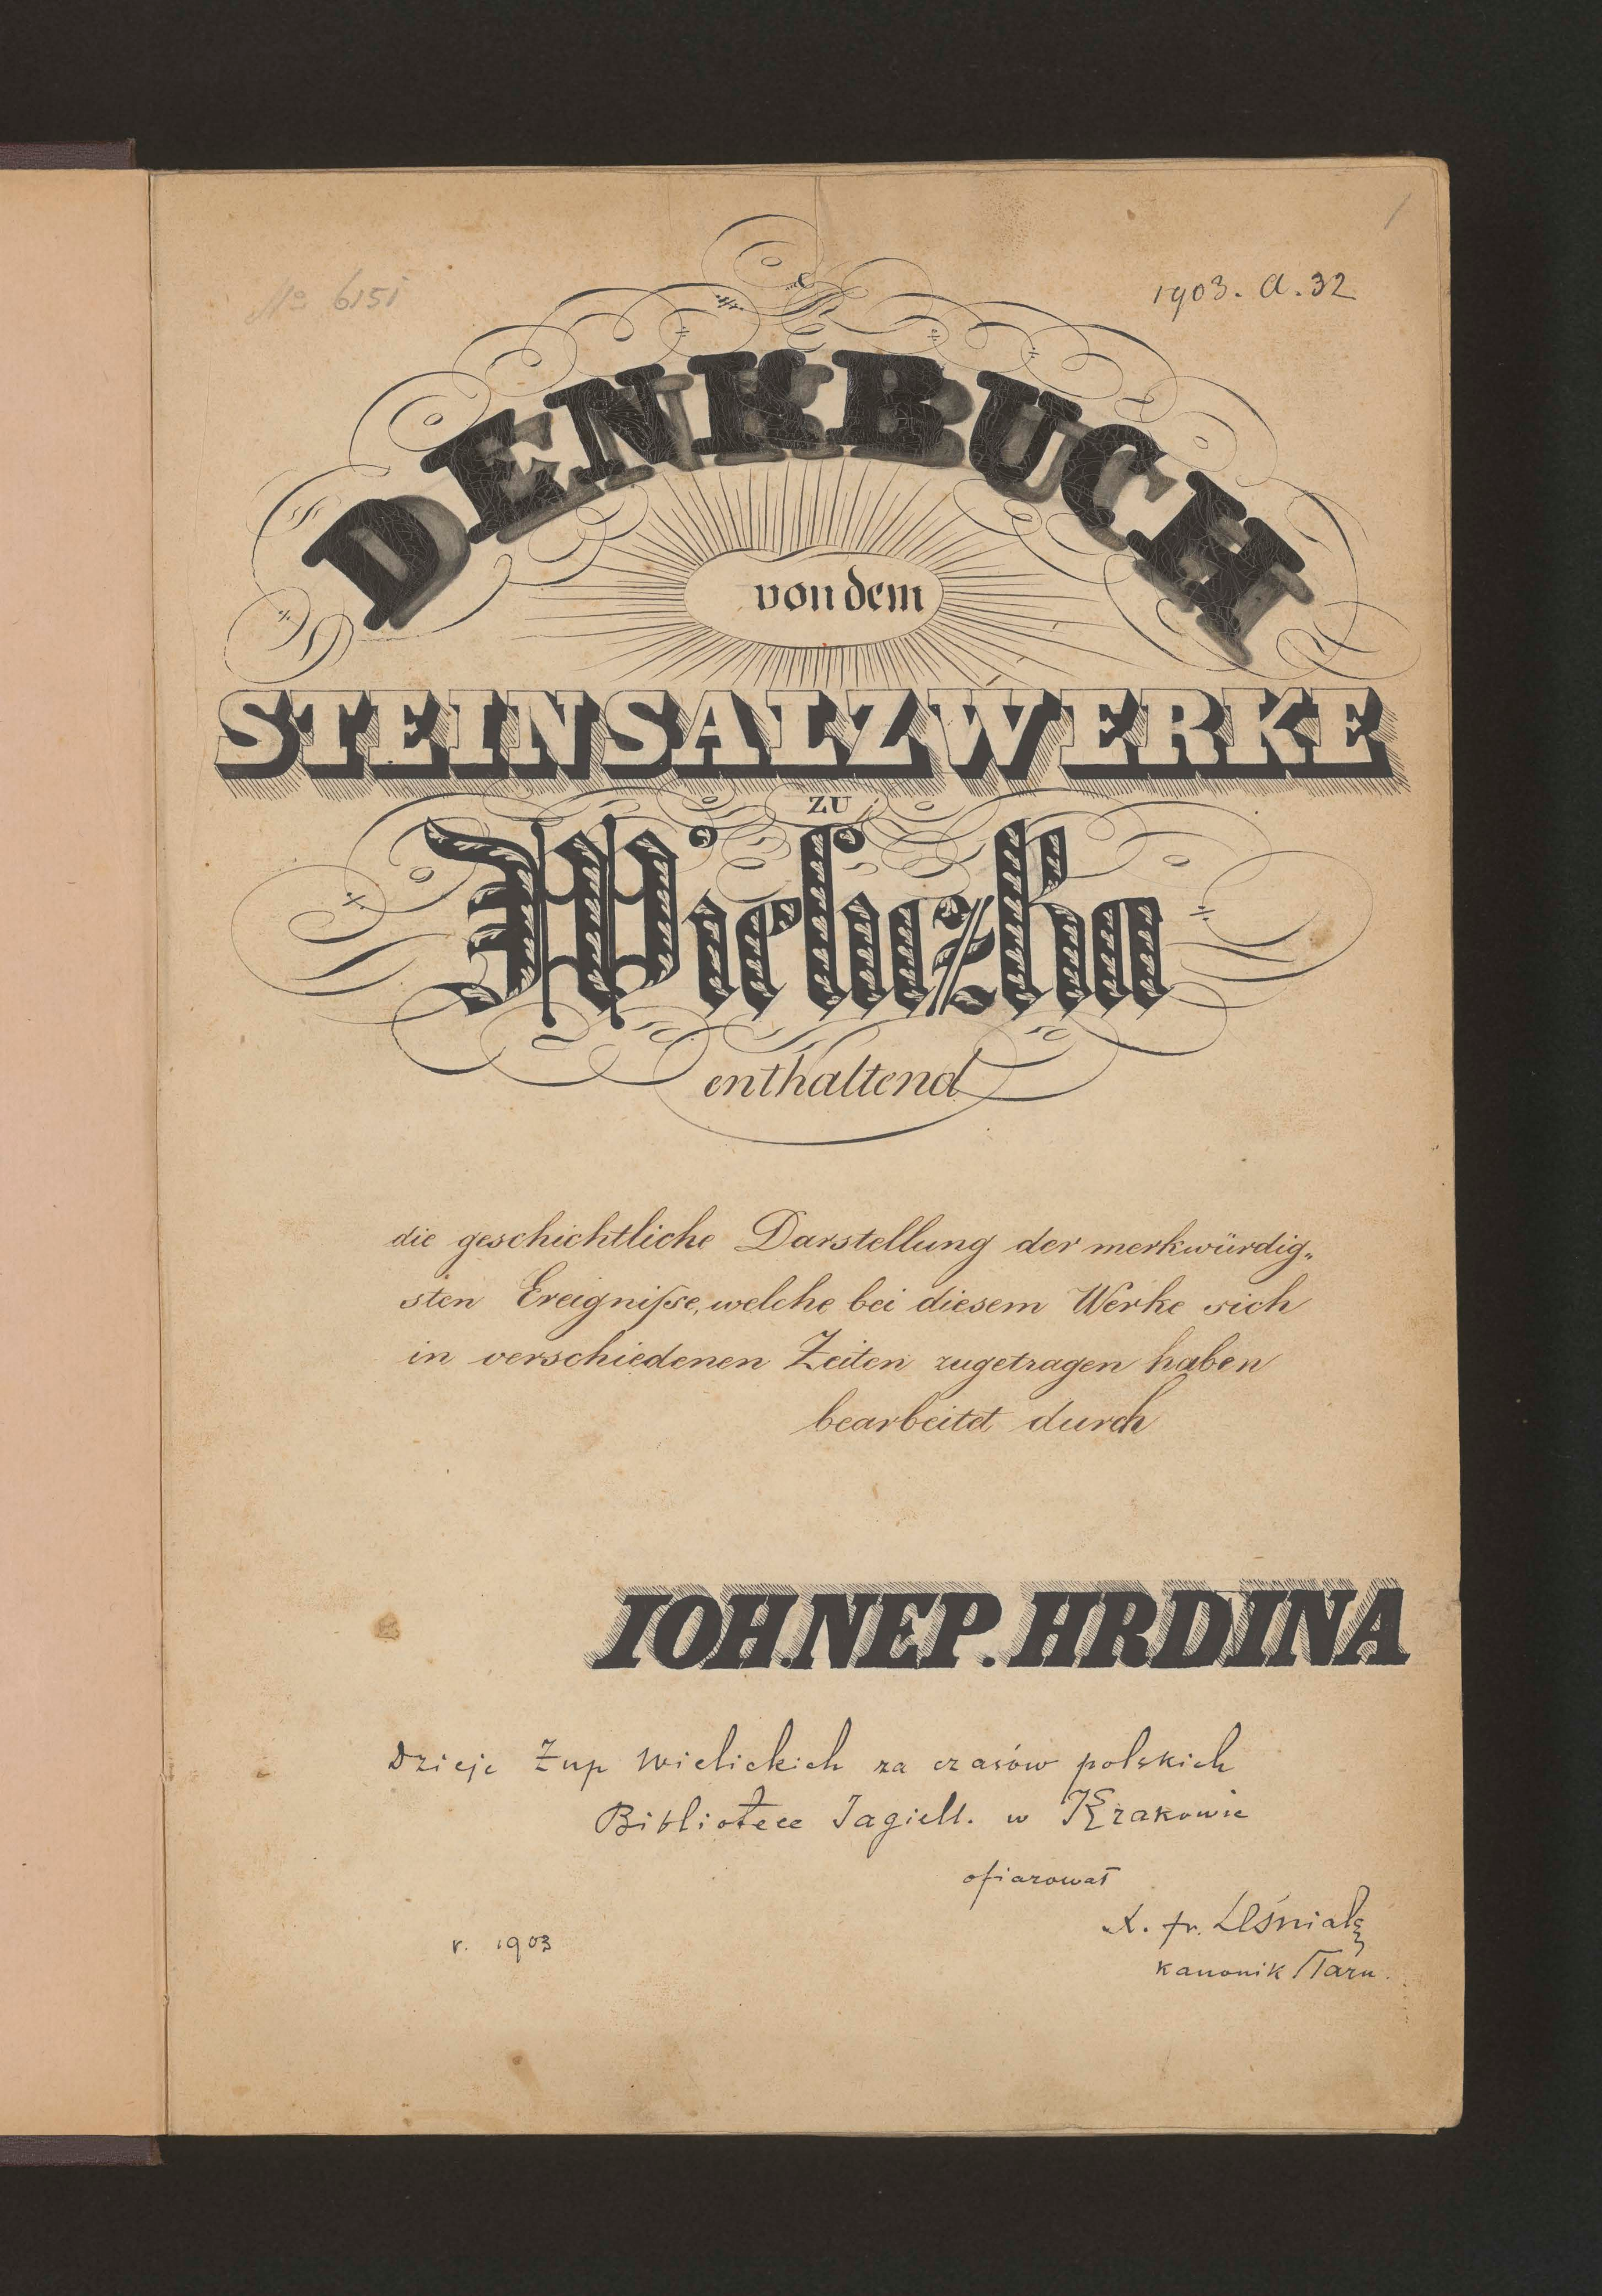 1
No 6151
1903. a. 32
DENKBUCH
von dem
STEINSALZWERKE
ZU
Wieliczka
enthaltend
die geschichtliche Darstellung der merkwürdig„
sten Ereigniſse, welche bei diesem Werke sich
in verschiedenen Zeiten zugetragen haben
bearbeitet durch
IOH. NEP. HRDINA
Dzieje Żup Wielickich za czasów polskich
Bibliotece Jagiell. w Krakowie
ofiarował
X. fr. Leśniak
r. 1903
kanonik Tarn.